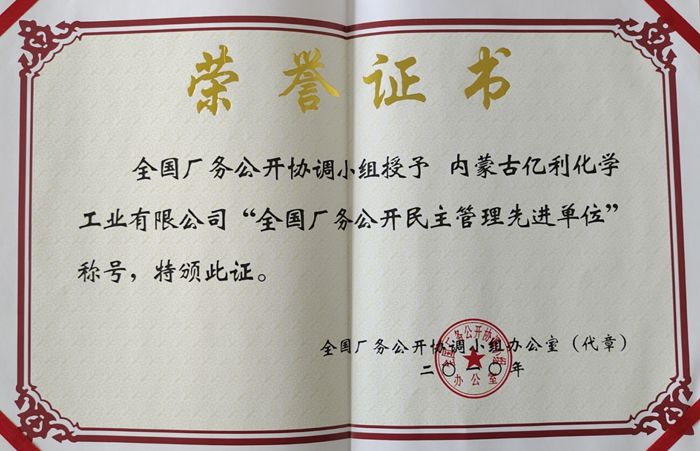 荣誉证书
全国厂务公开协调小组授予 内蒙古亿利化学
工业有限公司“全国厂务公开民主管理先进单位”
称号，特颁此证。
全国厂务公开协调小组办公室（代章）
二〇一〇年
全国厂务公开协调小组
办公室